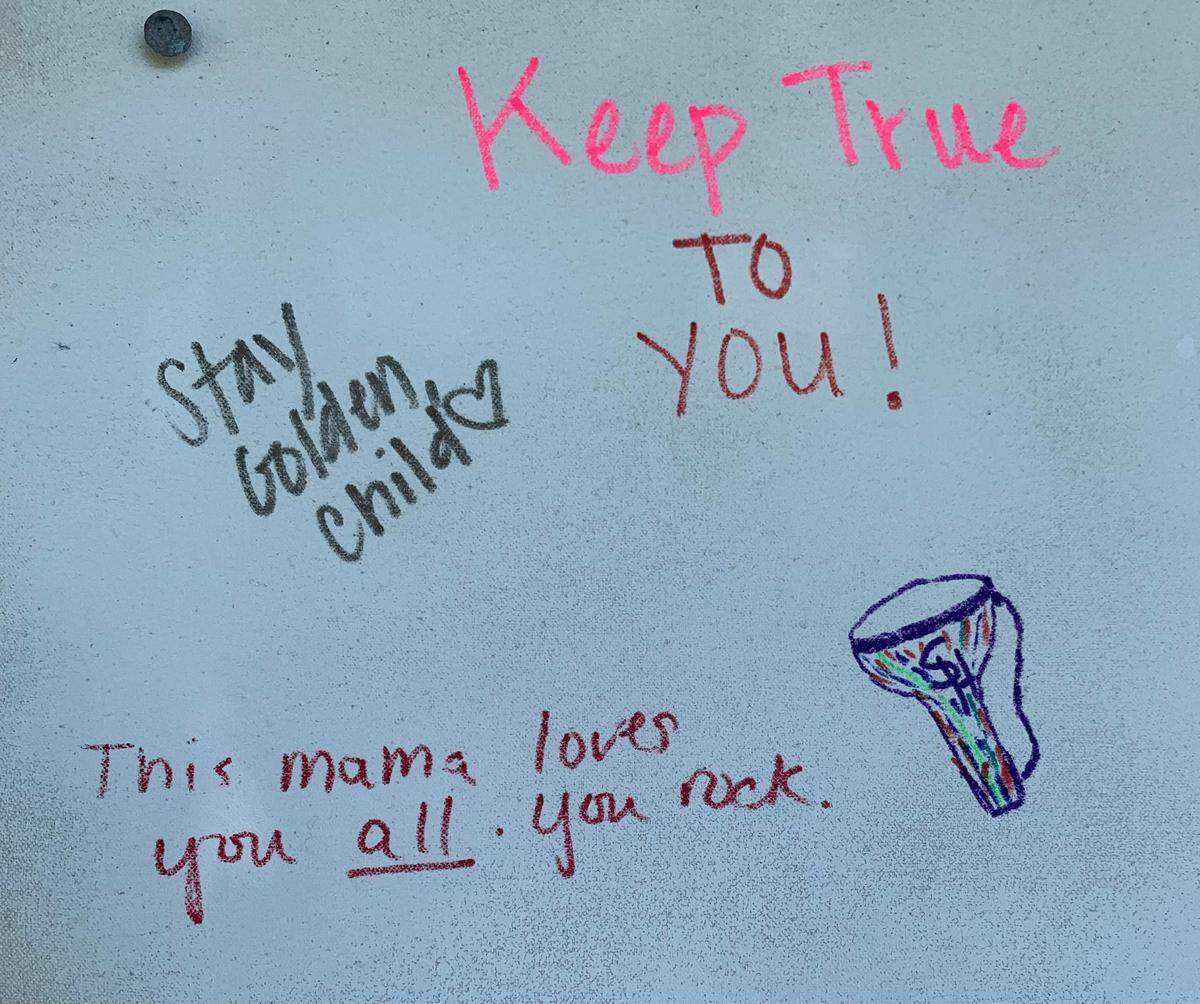 Keep True
TO
YOU!
Stay
Golden
Child♡
This mama loves
you all. you rock.